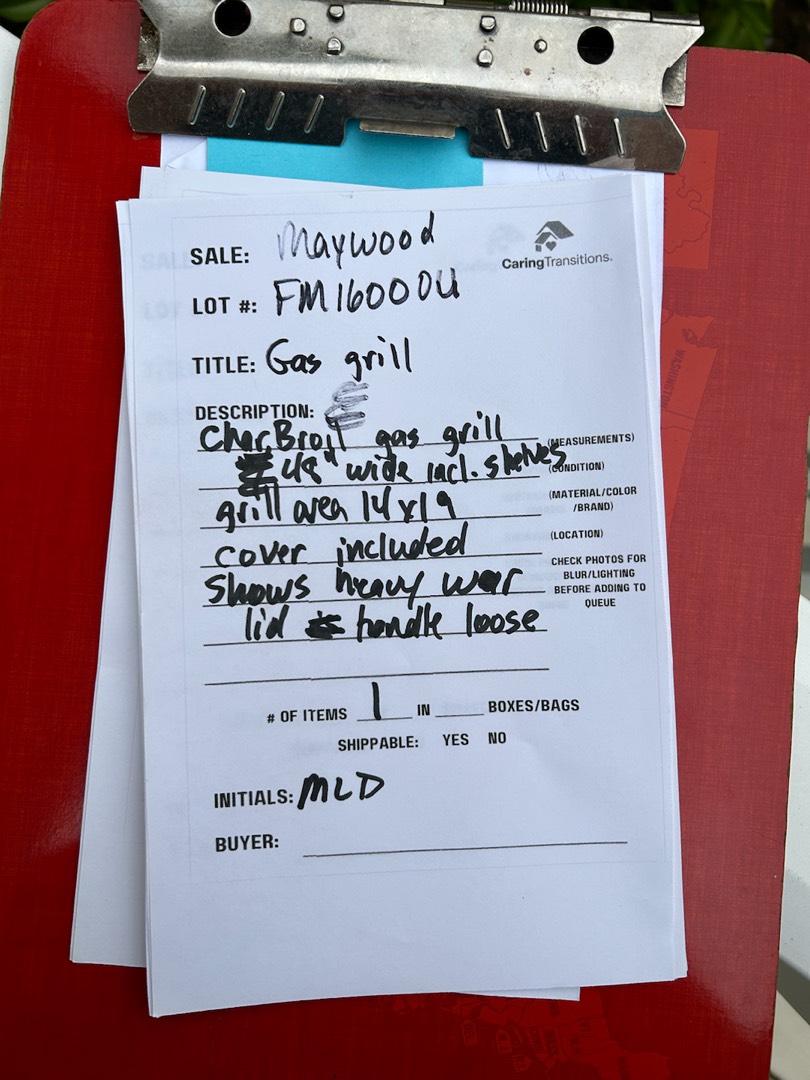 SALE: Maywood
CaringTransitions.
LOT #: FM16000U
TITLE: Gas grill
DESCRIPTION:
CharBroil gas grill (MEASUREMENTS)
48" wide incl. shelves (CONDITION)
grill area 14x19 (MATERIAL/COLOR
/BRAND)
cover included (LOCATION)
CHECK PHOTOS FOR
BLUR/LIGHTING
BEFORE ADDING TO
QUEUE
shows heavy wear
lid handle loose
# OF ITEMS 1 IN ____ BOXES/BAGS
SHIPPABLE: YES NO
INITIALS: MLD
BUYER:
WASHINGTON